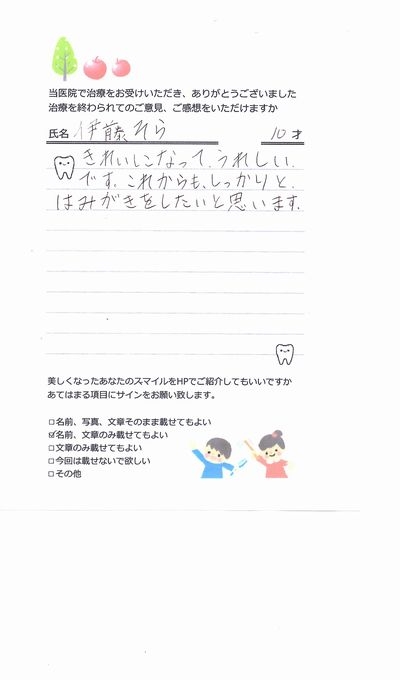 当医院で治療をお受けいただき、ありがとうございました
治療を終わられてのご意見、ご感想をいただけますか
氏名 伊藤そら 10才
きれいになって、うれしい
です。これからも、しっかりと、
はみがきをしたいと思います。
美しくなったあなたのスマイルをHPでご紹介してもいいですか
あてはまる項目にサインをお願い致します。
□名前、写真、文章そのまま載せてもよい
☑名前、文章のみ載せてもよい
□文章のみ載せてもよい
□今回は載せないで欲しい
□その他